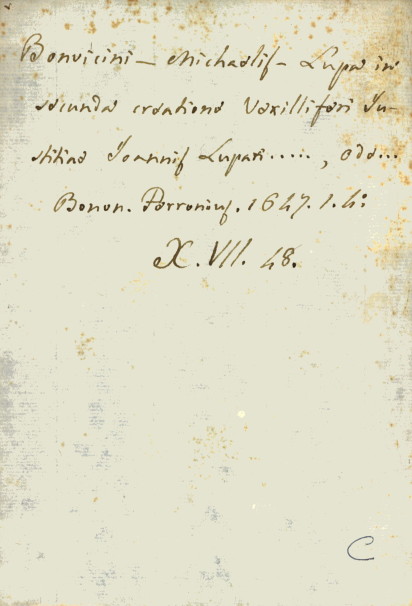 Bonvicini – Michaelis – Lupa in
secunda creatione Vexilliferi Ju-
stitiae Joannis Lupari....., ode...
Bonon. Ferronius. 1647. 1. 4º
X. VII. 48.
C